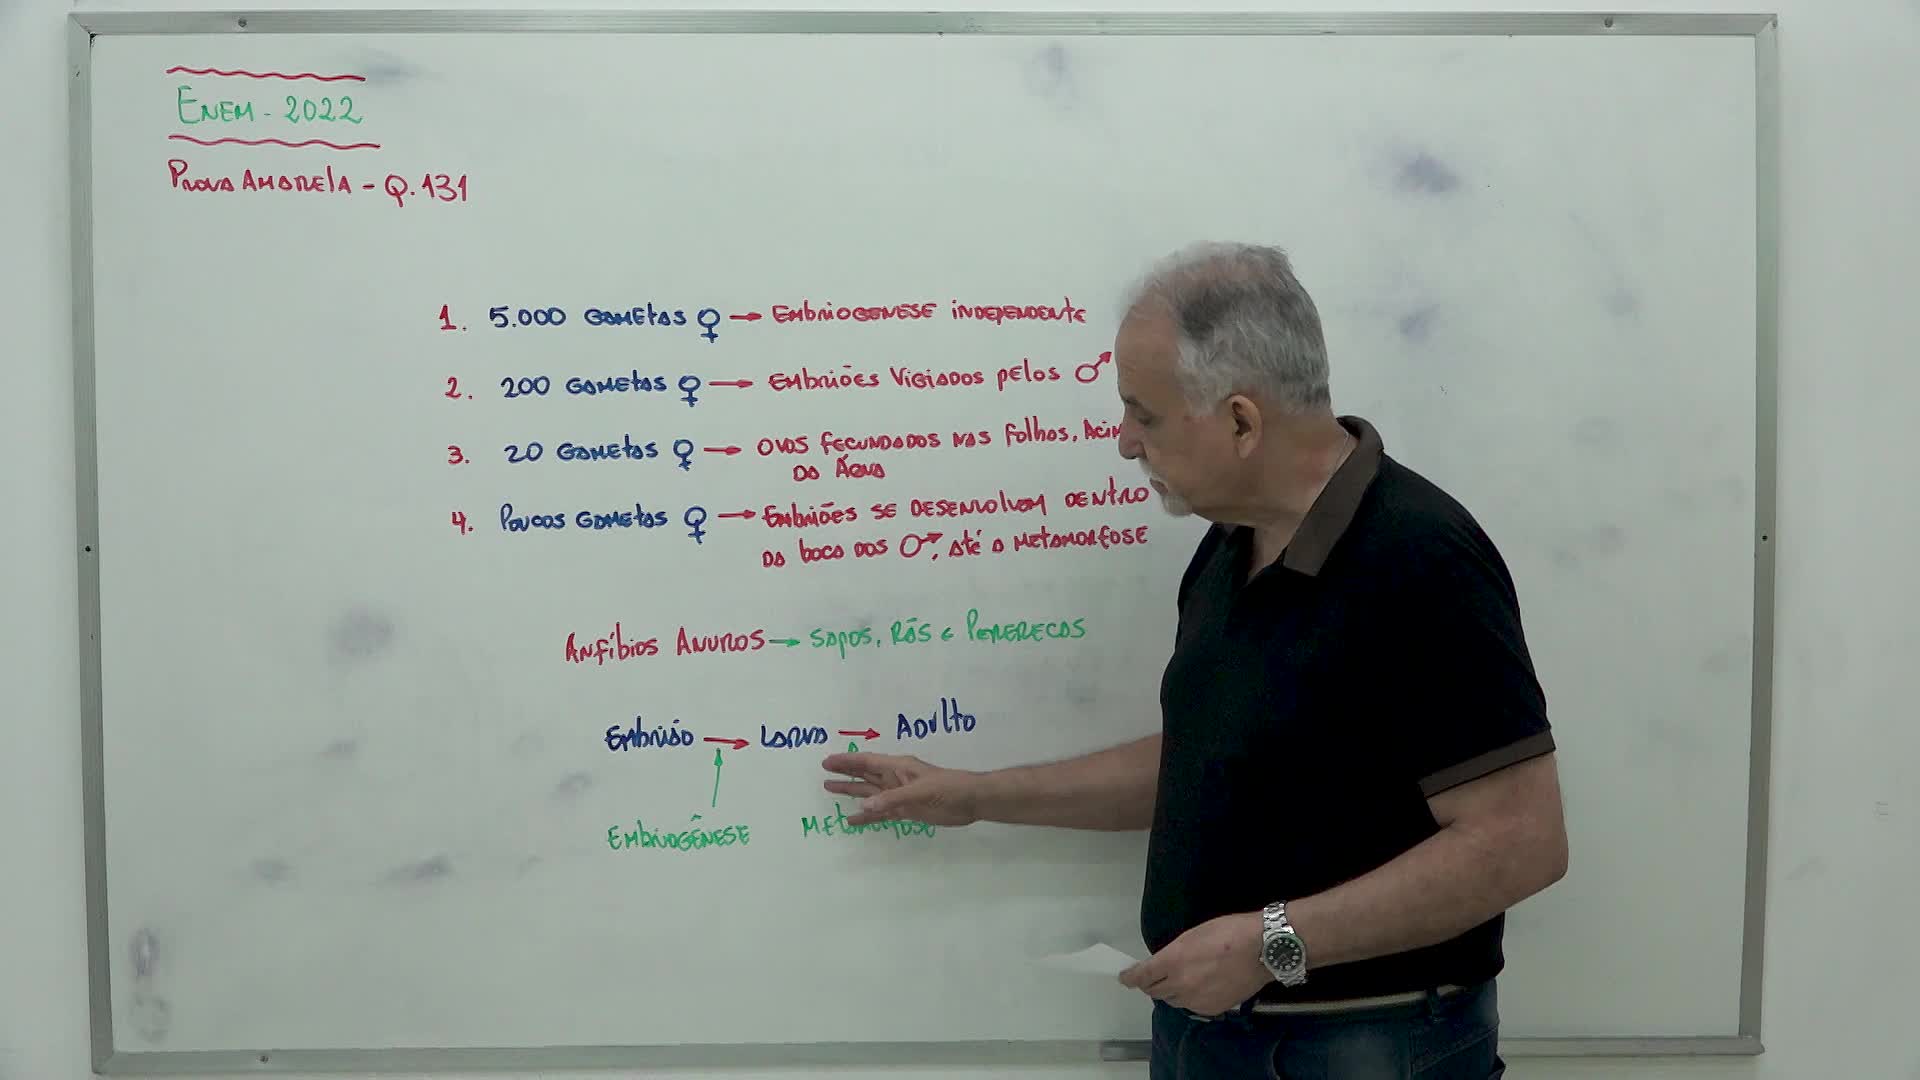 ENEM - 2022
PROVA AMARELA - Q. 131
1. 5.000 GAMETAS ♀ → EMBRIOGENESE INDEPENDENTE
2. 200 GAMETAS ♀ → EMBRIÕES VIGIADOS PELOS ♂
3. 20 GAMETAS ♀ → OVOS FECUNDADOS NAS FOLHAS, ACIM
DA ÁGUA
4. POUCOS GAMETAS ♀ → EMBRIÕES SE DESENVOLVEM DENTRO
DA BOCA DOS ♂, ATÉ A METAMORFOSE
ANFÍBIOS ANUROS → SAPOS, RÃS E PERERECAS
EMBRIÃO → LARVA → ADULTO
EMBRIOGÊNESE METAMORFOSE